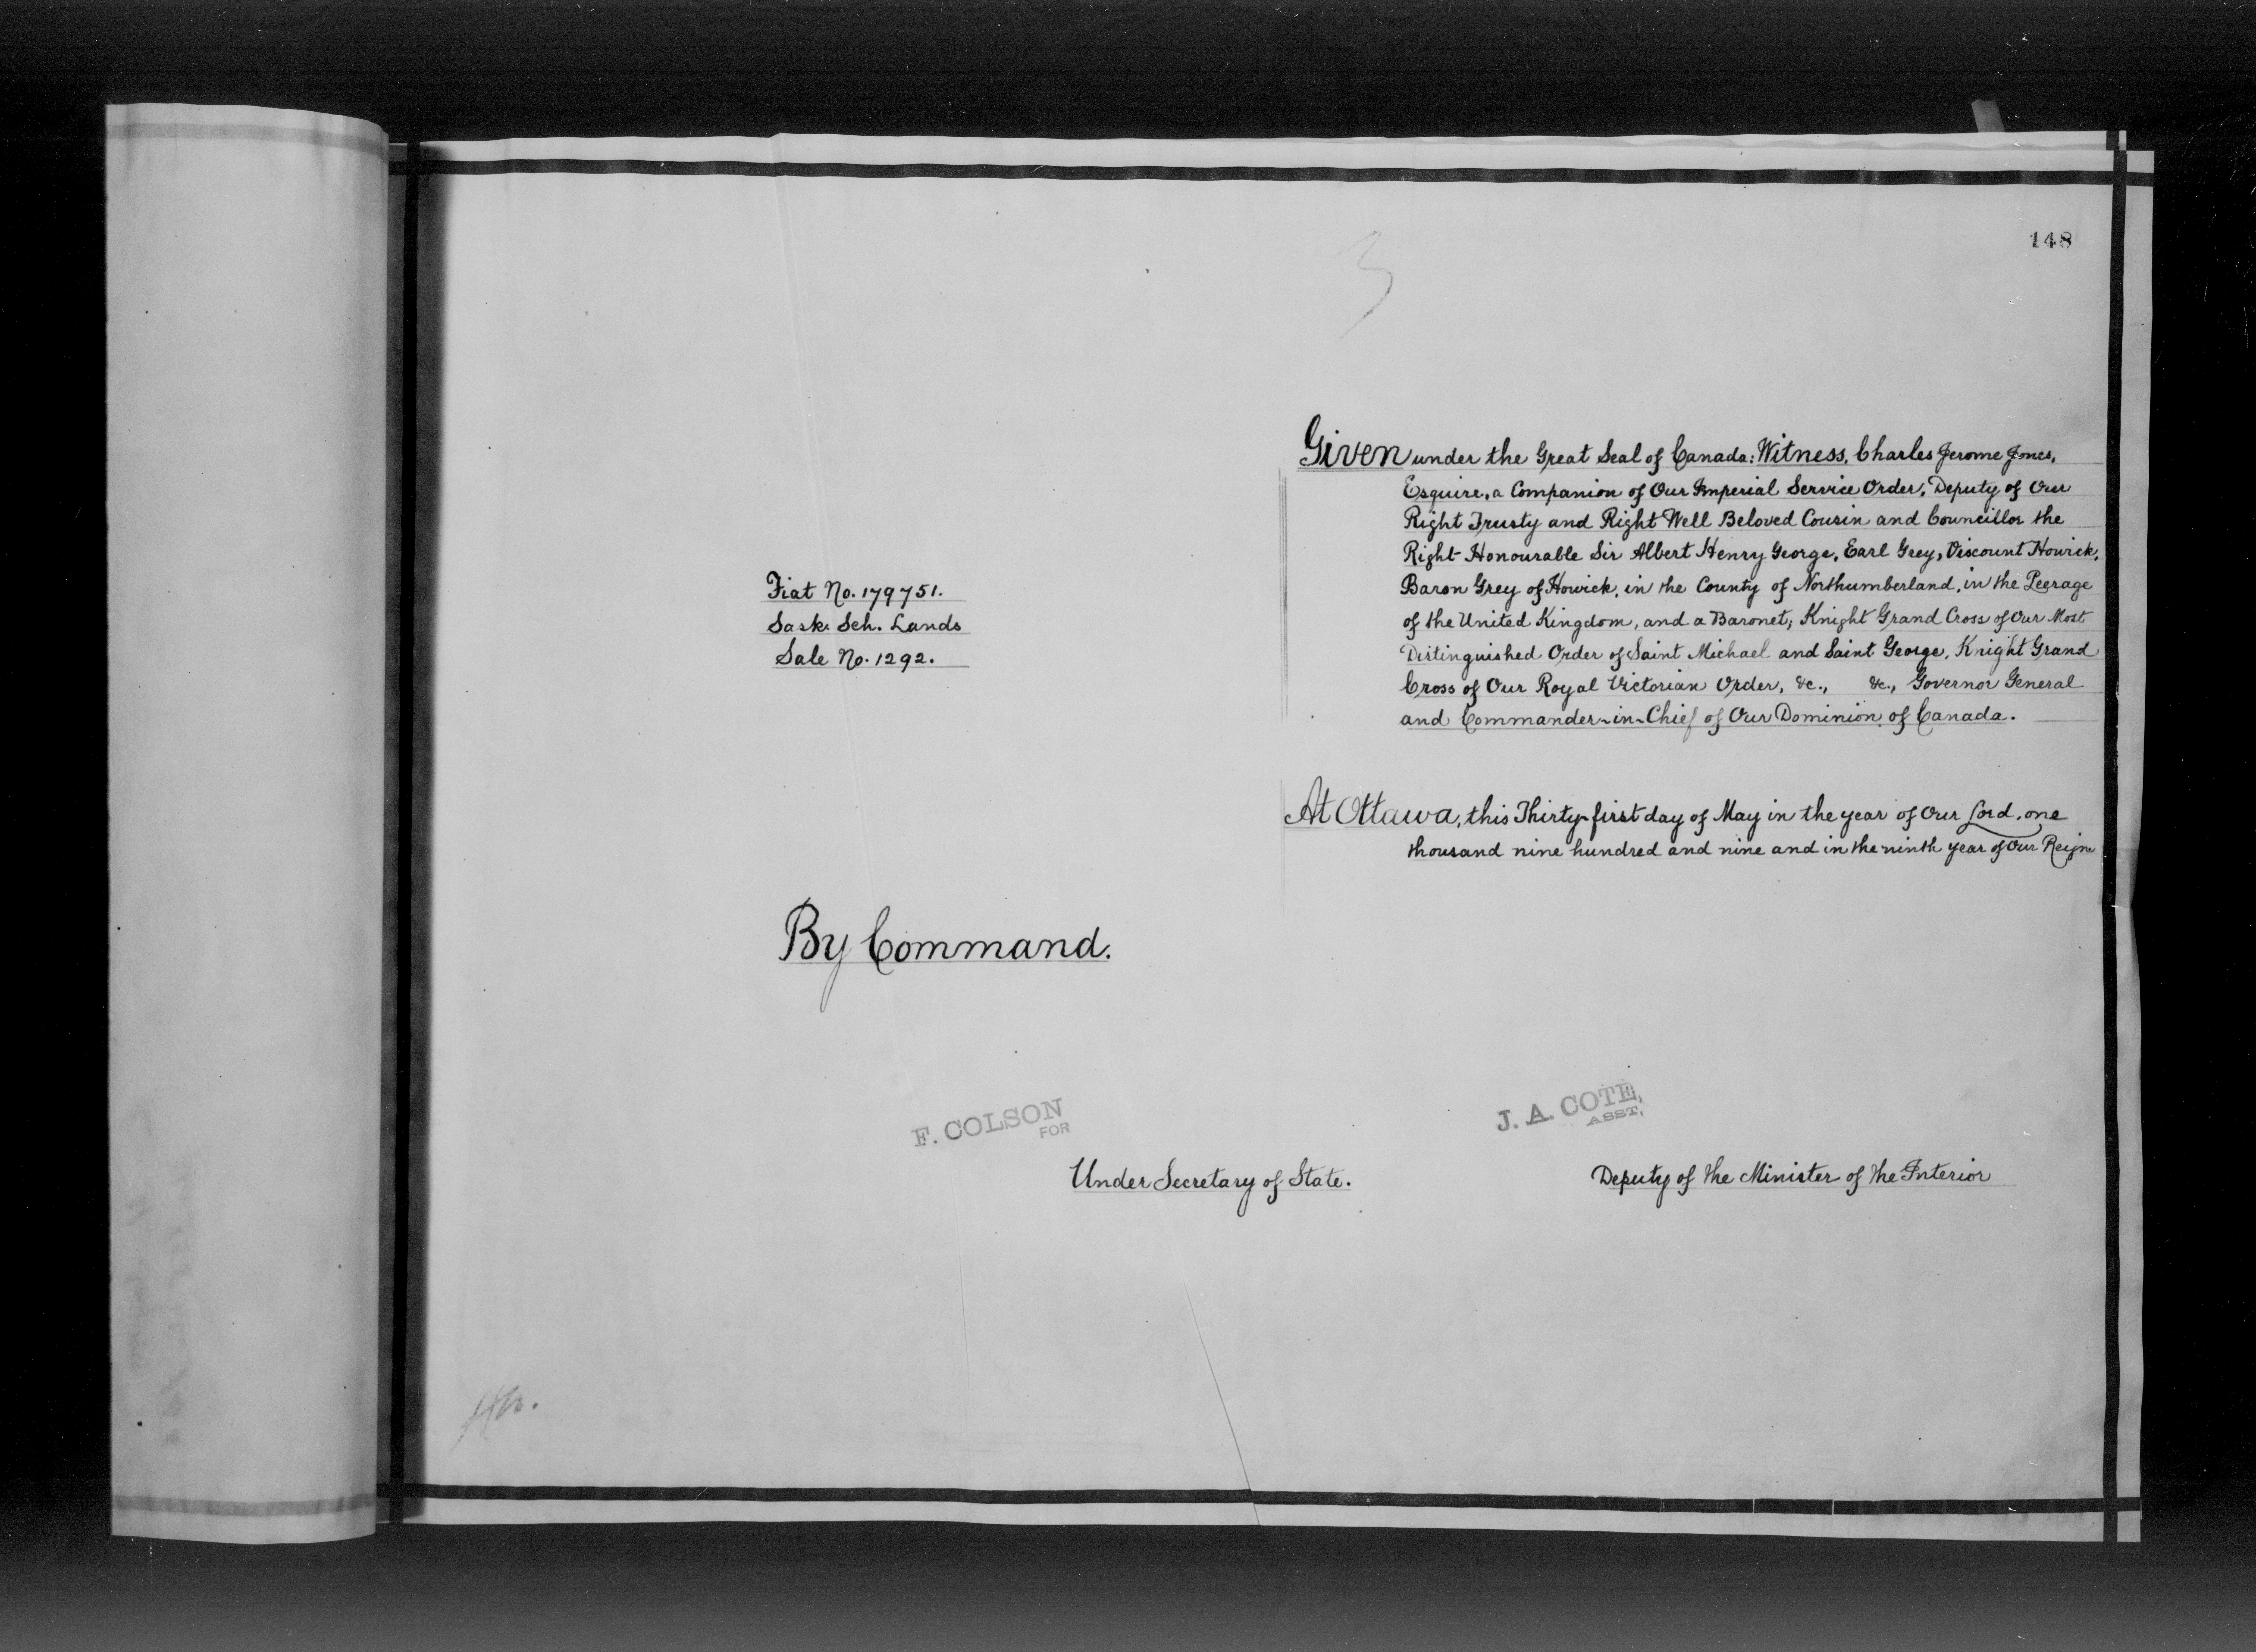 148
3
Given under the Great Seal of Canada: Witness, Charles Jerome Jones,
Esquire, a Companion of Our Imperial Service Order, Deputy of Our
Right Trusty and Right Well Beloved Cousin and Councillor the
Right Honourable Sir Albert Henry George, Earl Grey, Viscount Howick,
Baron Grey of Howick, in the County of Northumberland, in the Peerage
of the United Kingdom, and a Baronet; Knight Grand Cross of Our Most
Distinguished Order of Saint Michael and Saint George, Knight Grand
Cross of Our Royal Victorian Order, &c., &c., Governor General
and Commander-in-Chief of Our Dominion of Canada.
Fiat No. 179751.
Sask. Sch. Lands
Sale No. 1292.
At Ottawa, this Thirty-first day of May in the year of Our Lord, one
thousand nine hundred and nine and in the ninth year of Our Reign
By Command.
F. COLSON
FOR
Under Secretary of State.
J. A. COTE,
ASST,
Deputy of the Minister of the Interior